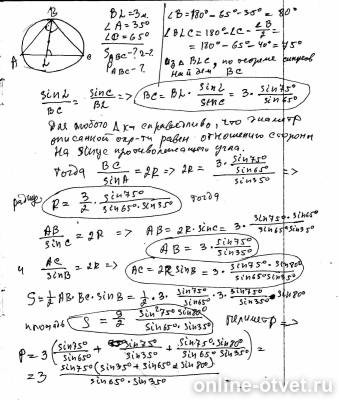 B
A
C
L
BL = 3 м.
∠A = 35°
∠C = 65°
S ABC - ?
P ABC - ?
∠B = 180° - 65° - 35° = 80°
∠BLC = 180° - ∠C - ∠B/2 =
= 180° - 65° - 40° = 75°
Из △BLC, по теореме синусов
найдем BC
sin L / BC = sin C / BL => BC = BL · sin L / sin C = 3 · sin75° / sin65°
Для любого △ка справедливо, что диаметр
описанной окр-ти равен отношению стороны
на синус противолежащего угла.
Тогда BC / sin A = 2R => 2R = 3 · sin75° / sin65° · sin35° =>
радиус R = 3/2 · sin75° / sin65° · sin35° тогда
AB / sin C = 2R => AB = 2R · sin C = 3 · sin75° · sin65° / sin65° sin35°
AB = 3 · sin75° / sin35°
и AC / sin B = 2R => AC = 2R sin B = 3 · sin75° · sin80° / sin65° sin35°
S = 1/2 AB · BC · sin B = 1/2 · 3 · sin75° / sin65° · 3 · sin75° / sin35° · sin80°
площадь S = 9/2 sin²75° sin80° / sin65° · sin35° периметр =>
P = 3 ( sin75° / sin65° + sin75° / sin35° + sin75° · sin80° / sin65° · sin35° ) =
= 3 sin75° (sin35° + sin65° + sin80°) / sin65° · sin35°
online-otvet.ru